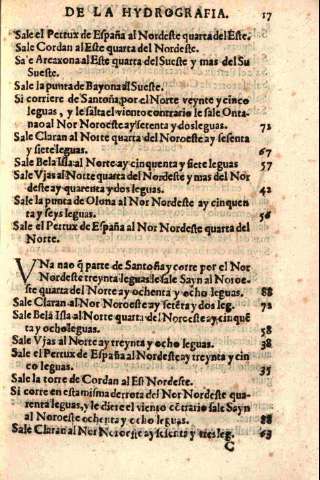 DE LA HYDROGRAFIA. 17
Sale el Pertux de España al Nordeste quarta del Este.
Sale Cordan al Este quarta del Nordeste.
Sale Arcaxona al Este quarta del Sueste y mas del Su
Sueste.
Sale la punta de Bayona al Sueste.
Si corriere de Santoña, por el Norte veynte y cinco
leguas, y le salta el viento contrario le sale Onta-
nao al Nor Noroeste ay setenta y dos leguas. 72
Sale Claran al Norte quarta del Noroeste ay sesenta
y siete leguas. 67
Sale Bela Isla al Norte ay cinquenta y siete leguas 57
Sale Vjas al Norte quarta del Nordeste y mas del Nor
deste ay quarenta y dos leguas. 42
Sale la punta de Olona al Nor Nordeste ay cinquen
ta y seys leguas. 56
Sale el Pertux de España al Nor Nordeste quarta del
Norte.
VNa nao q̃ parte de Santoña y corre por el Nor
Nordeste treynta leguas le sale Sayn al Noroe-
ste quarta del Norte ay ochenta y ocho leguas. 88
Sale Claran al Nor Noroeste ay setẽta y dos leg. 72
Sale Bela Isla al Norte quarta del Noroeste ay cinquẽ
ta y ocho leguas. 58
Sale Vjas al Norte ay treynta y ocho leguas. 38
Sale el Pertux de España al Nordeste ay treynta y cin
co leguas. 35
Sale la torre de Cordan al Es Nordeste.
Si corre en esta misma derrota del Nor Nordeste qua-
renta leguas, y le diere el viento cõtrario sale Sayn
al Noroeste ochenta y ocho leguas. 88
Sale Claran al Nor Noroeste ay sesenta y tres leg. 63
C